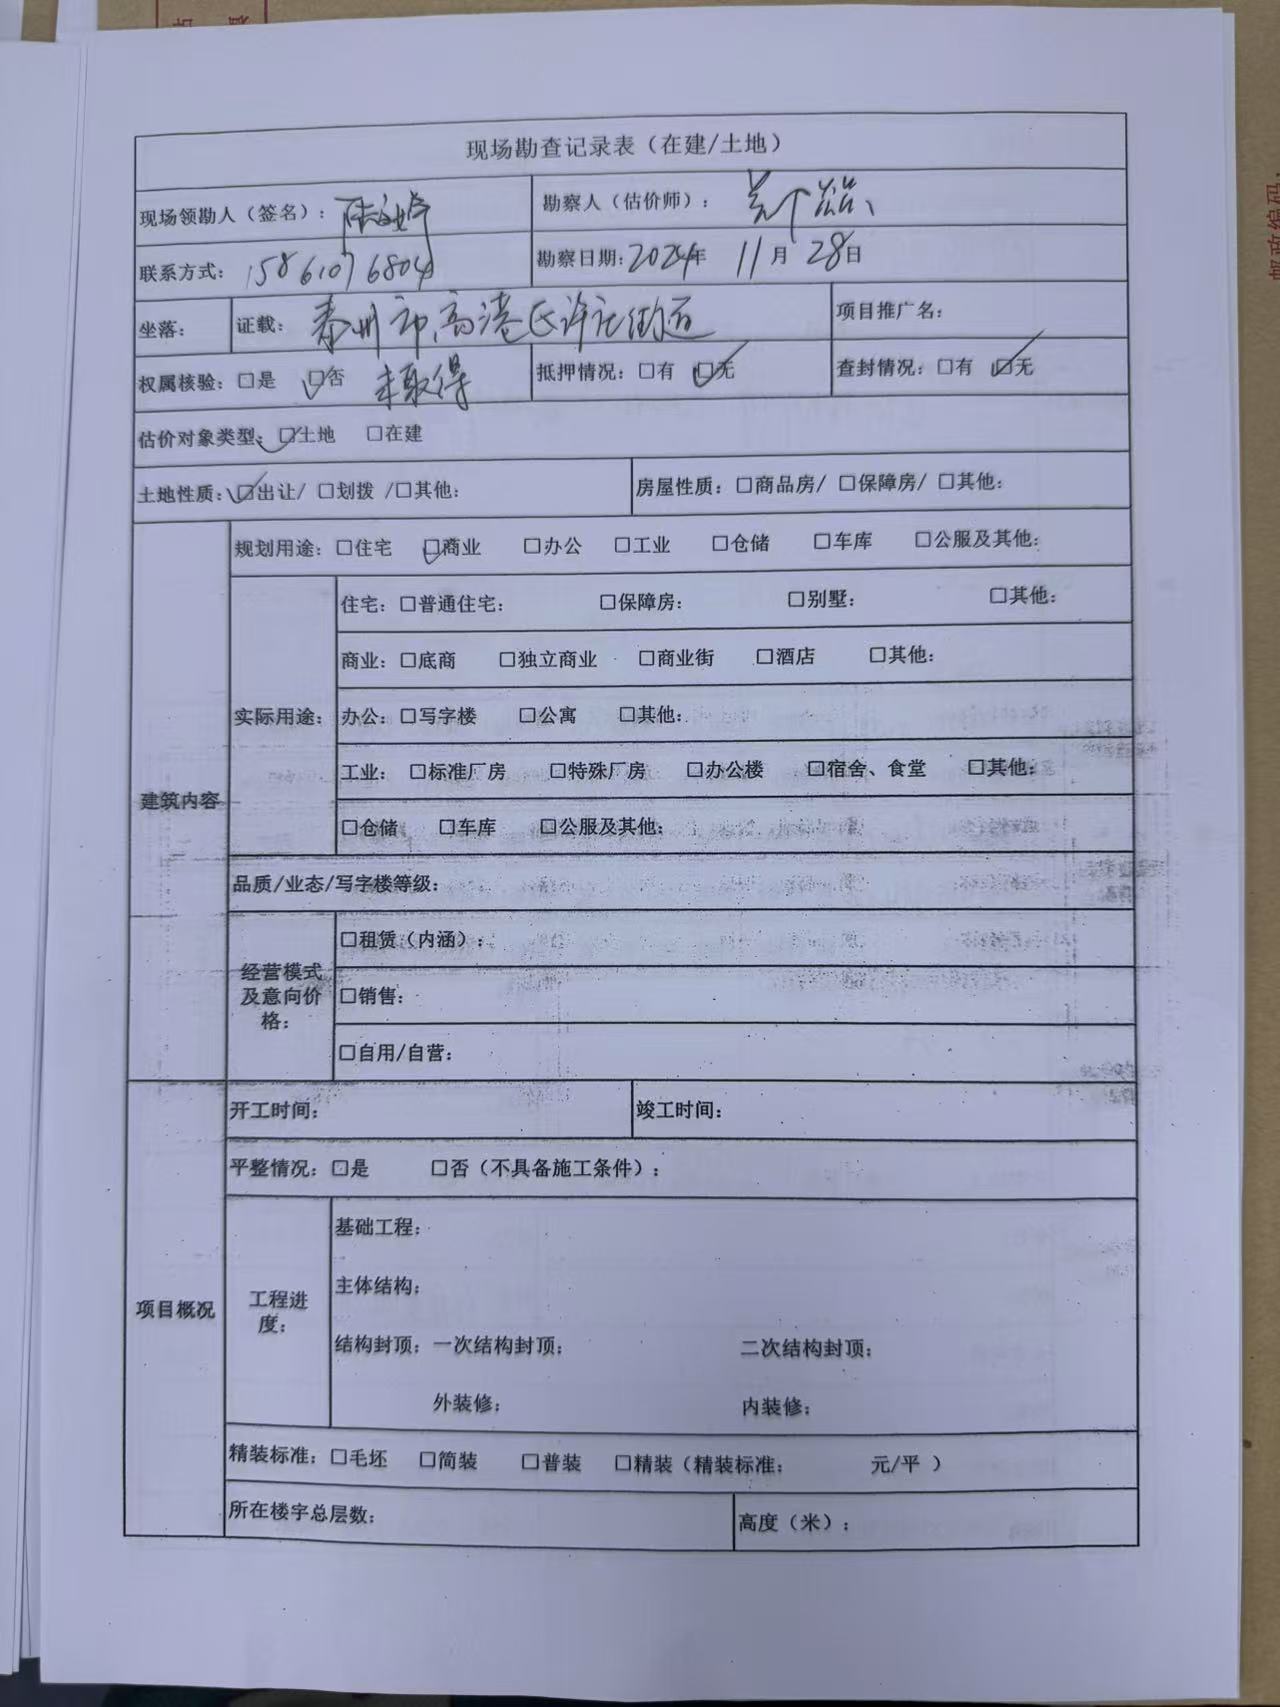 现场勘查记录表（在建/土地）
现场领勘人（签名）：
勘察人（估价师）：
联系方式：15861076804
勘察日期:2024年 11月 28日
坐落： 证载：泰州市高港区许庄街道
项目推广名：
权属核验：□是 ☑否 未取得
抵押情况：□有 ☑无
查封情况：□有 ☑无
估价对象类型：☑土地 □在建
土地性质：☑出让/ □划拨 /□其他：
房屋性质：□商品房/ □保障房/ □其他：
建筑内容
规划用途：□住宅 ☑商业 □办公 □工业 □仓储 □车库 □公服及其他：
实际用途：
住宅：□普通住宅： □保障房： □别墅： □其他：
商业：□底商 □独立商业 □商业街 □酒店 □其他：
办公：□写字楼 □公寓 □其他：
工业： □标准厂房 □特殊厂房 □办公楼 □宿舍、食堂 □其他：
□仓储 □车库 □公服及其他：
品质/业态/写字楼等级：
经营模式
及意向价
格：
□租赁（内涵）：
□销售：
□自用/自营：
项目概况
开工时间：
竣工时间：
平整情况：□是 □否（不具备施工条件）：
工程进
度：
基础工程：
主体结构：
结构封顶：一次结构封顶： 二次结构封顶：
外装修： 内装修：
精装标准：□毛坯 □简装 □普装 □精装（精装标准： 元/平 ）
所在楼宇总层数：
高度（米）：
邮政编码